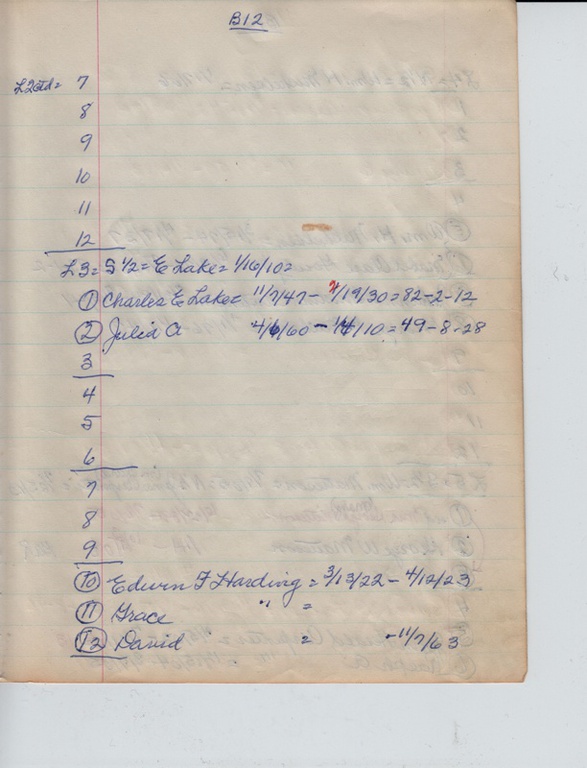 B12
L2 ctd = 7
8
9
10
11
12
L3 = S 1/2 = E Lake = 1/16/10 =
① Charles E Lake = 11/7/47 - /19/30 = 82-2-12
② Julia A 4/6/60 - /10 = 49-8-28
3
4
5
6
7
8
9
⑩ Edwin F Harding = 3/13/22 - 4/12/23
⑪ Grace " =
⑫ David = -11/7/63